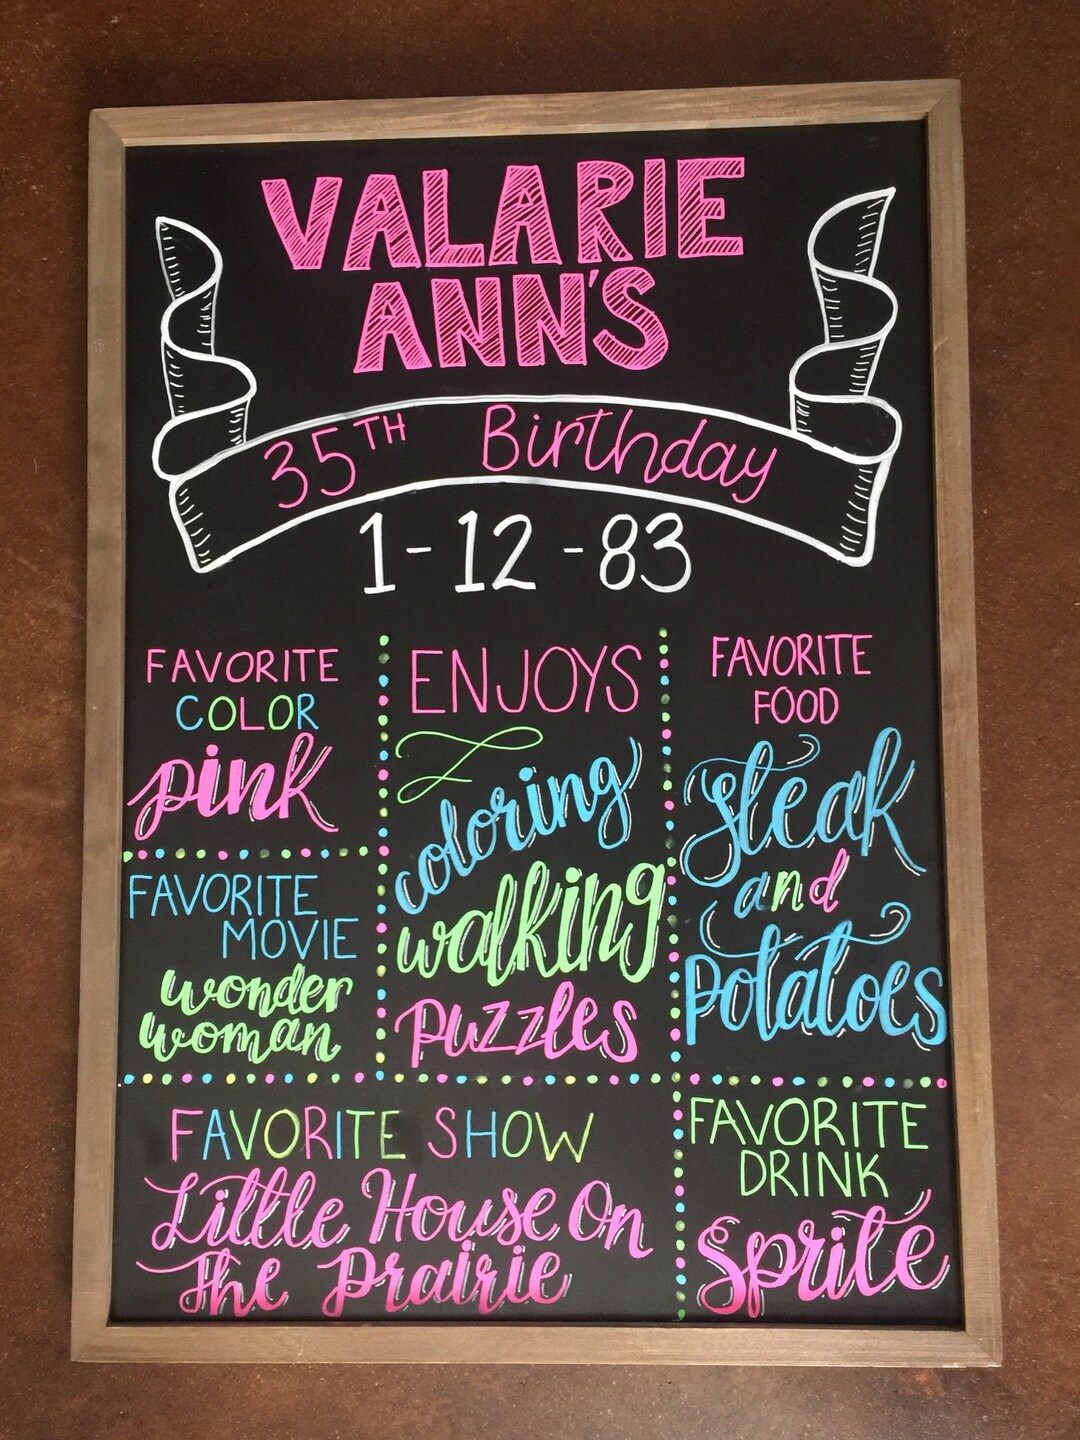 VALARIE
ANN'S
35TH Birthday
1-12-83
FAVORITE
COLOR
pink
FAVORITE
MOVIE
wonder
woman
ENJOYS
coloring
walking
puzzles
FAVORITE
FOOD
steak
and
potatoes
FAVORITE SHOW
Little House On
The Prairie
FAVORITE
DRINK
Sprite